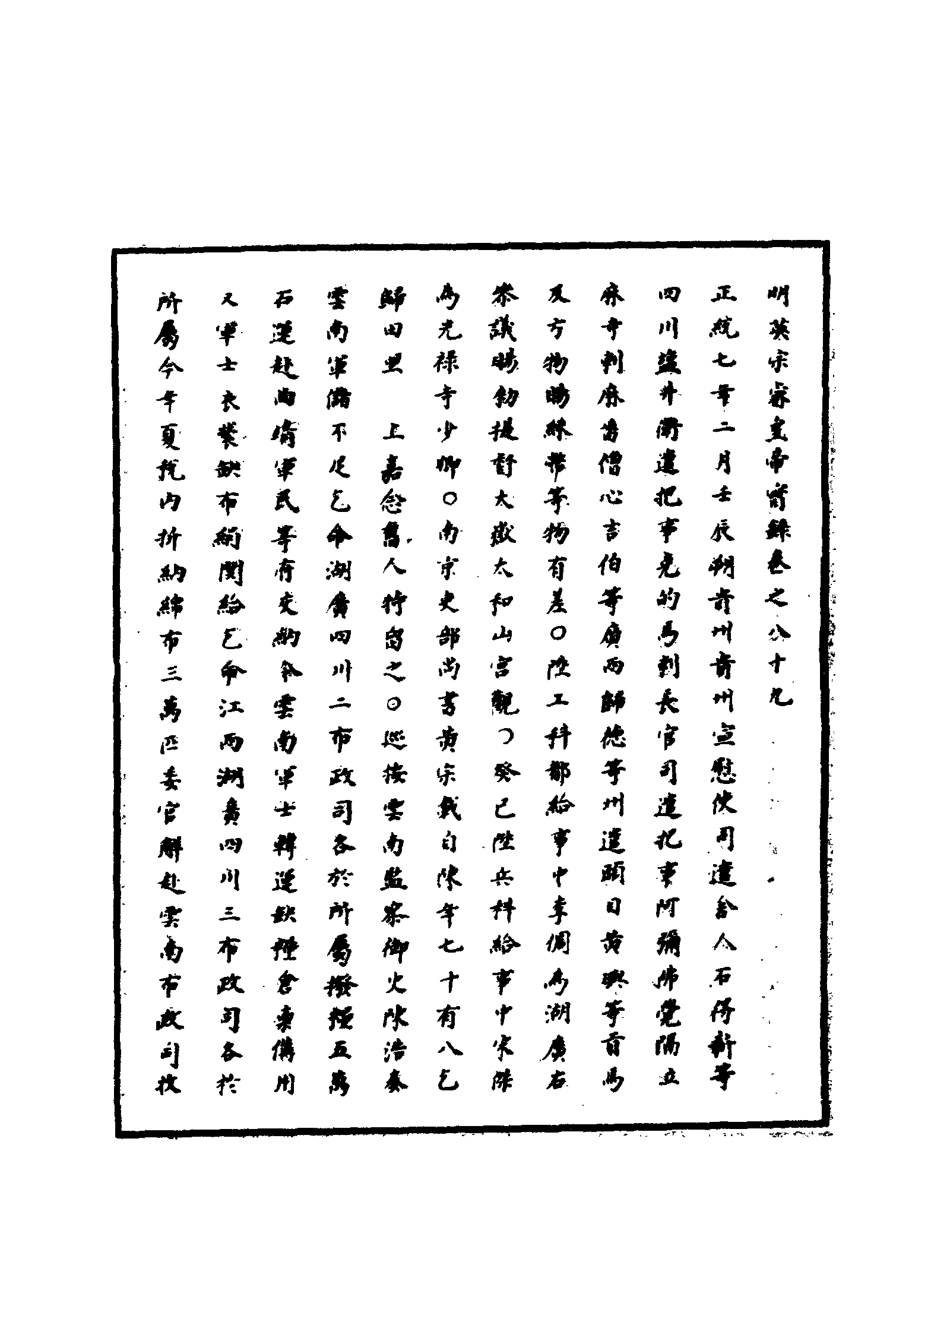 明英宗睿皇帝實錄卷之八十九
正統七年二月壬辰朔貴州貴州宣慰使司遣舍人石得新等
四川鹽井衛遣把事堯的馬剌長官司遣把事阿彌佛覺隔立
麻寺剌麻昔僧心吉伯等廣西歸德等州遣頭目黃璵等貢馬
及方物賜綵幣等物有差○陞工科都給事中李倜為湖廣右
參議賜勑提督太嶽太和山宮觀○癸巳陞兵科給事中宋傑
為光祿寺少卿○南京吏部尚書黃宗載自陳年七十有八乞
歸田里　上嘉念舊人特留之○巡按雲南監察御史陳浩奏
雲南軍儲不足乞命湖廣四川二布政司各於所屬撥糧五萬
石運赴曲靖軍民等府交納令雲南軍士轉運缺糧倉廩備用
又軍士衣裝缺布絹關給乞命江西湖廣四川三布政司各於
所屬今年夏稅內折納綿布三萬匹委官解赴雲南布政司收